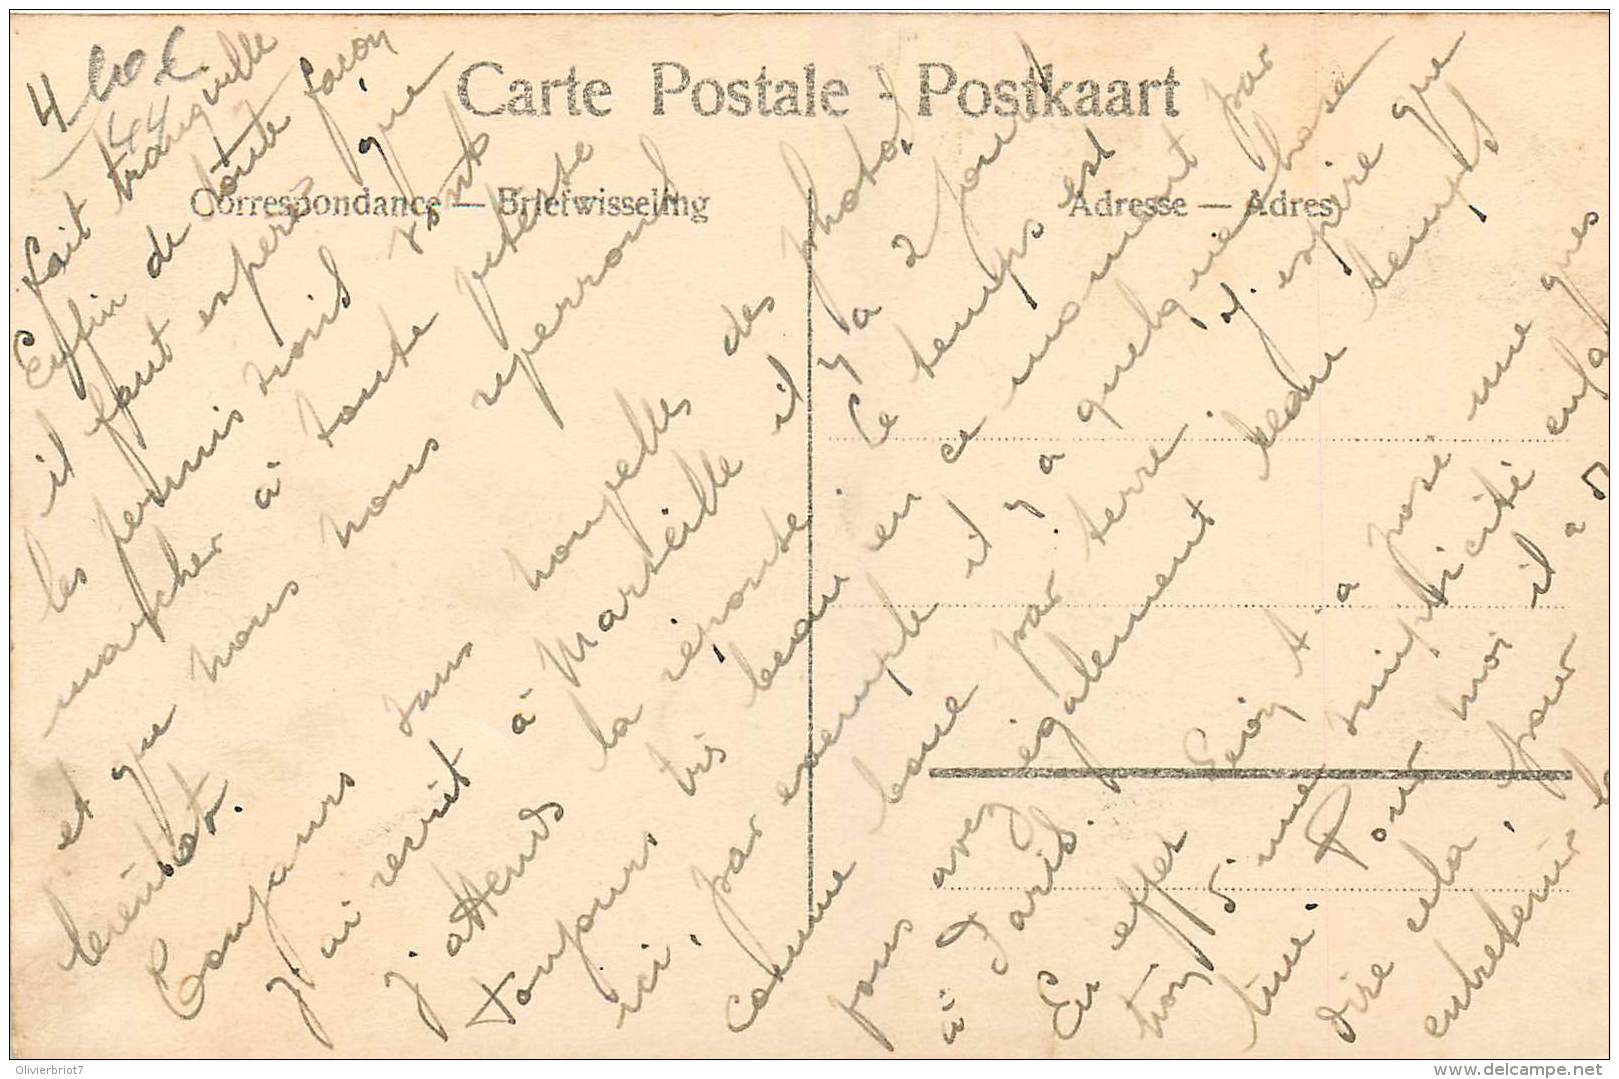 4
10 €
44
Carte Postale - Postkaart
Correspondance — Briefwisseling
Adresse — Adres
fait tranquille
Enfin de toute façon
il faut espérer que
les permis vont
marcher à toute vitesse
et que nous nous reverrons
bientôt.
Toujours sans nouvelles des photos
j'ai écrit à Marseille il y a 2 jours
j'attends la réponse. Le temps est
toujours très beau en ce moment par
ici, par exemple il y a quelque chose
comme boue par terre. J'espère que
vous avez également beau temps
à Paris.
En effet Léon t'a posé une ques
simplicité enfa
tine. Pour moi il a
dire cela, pour
entretenir la
Olivierbriot7
www.delcampe.net